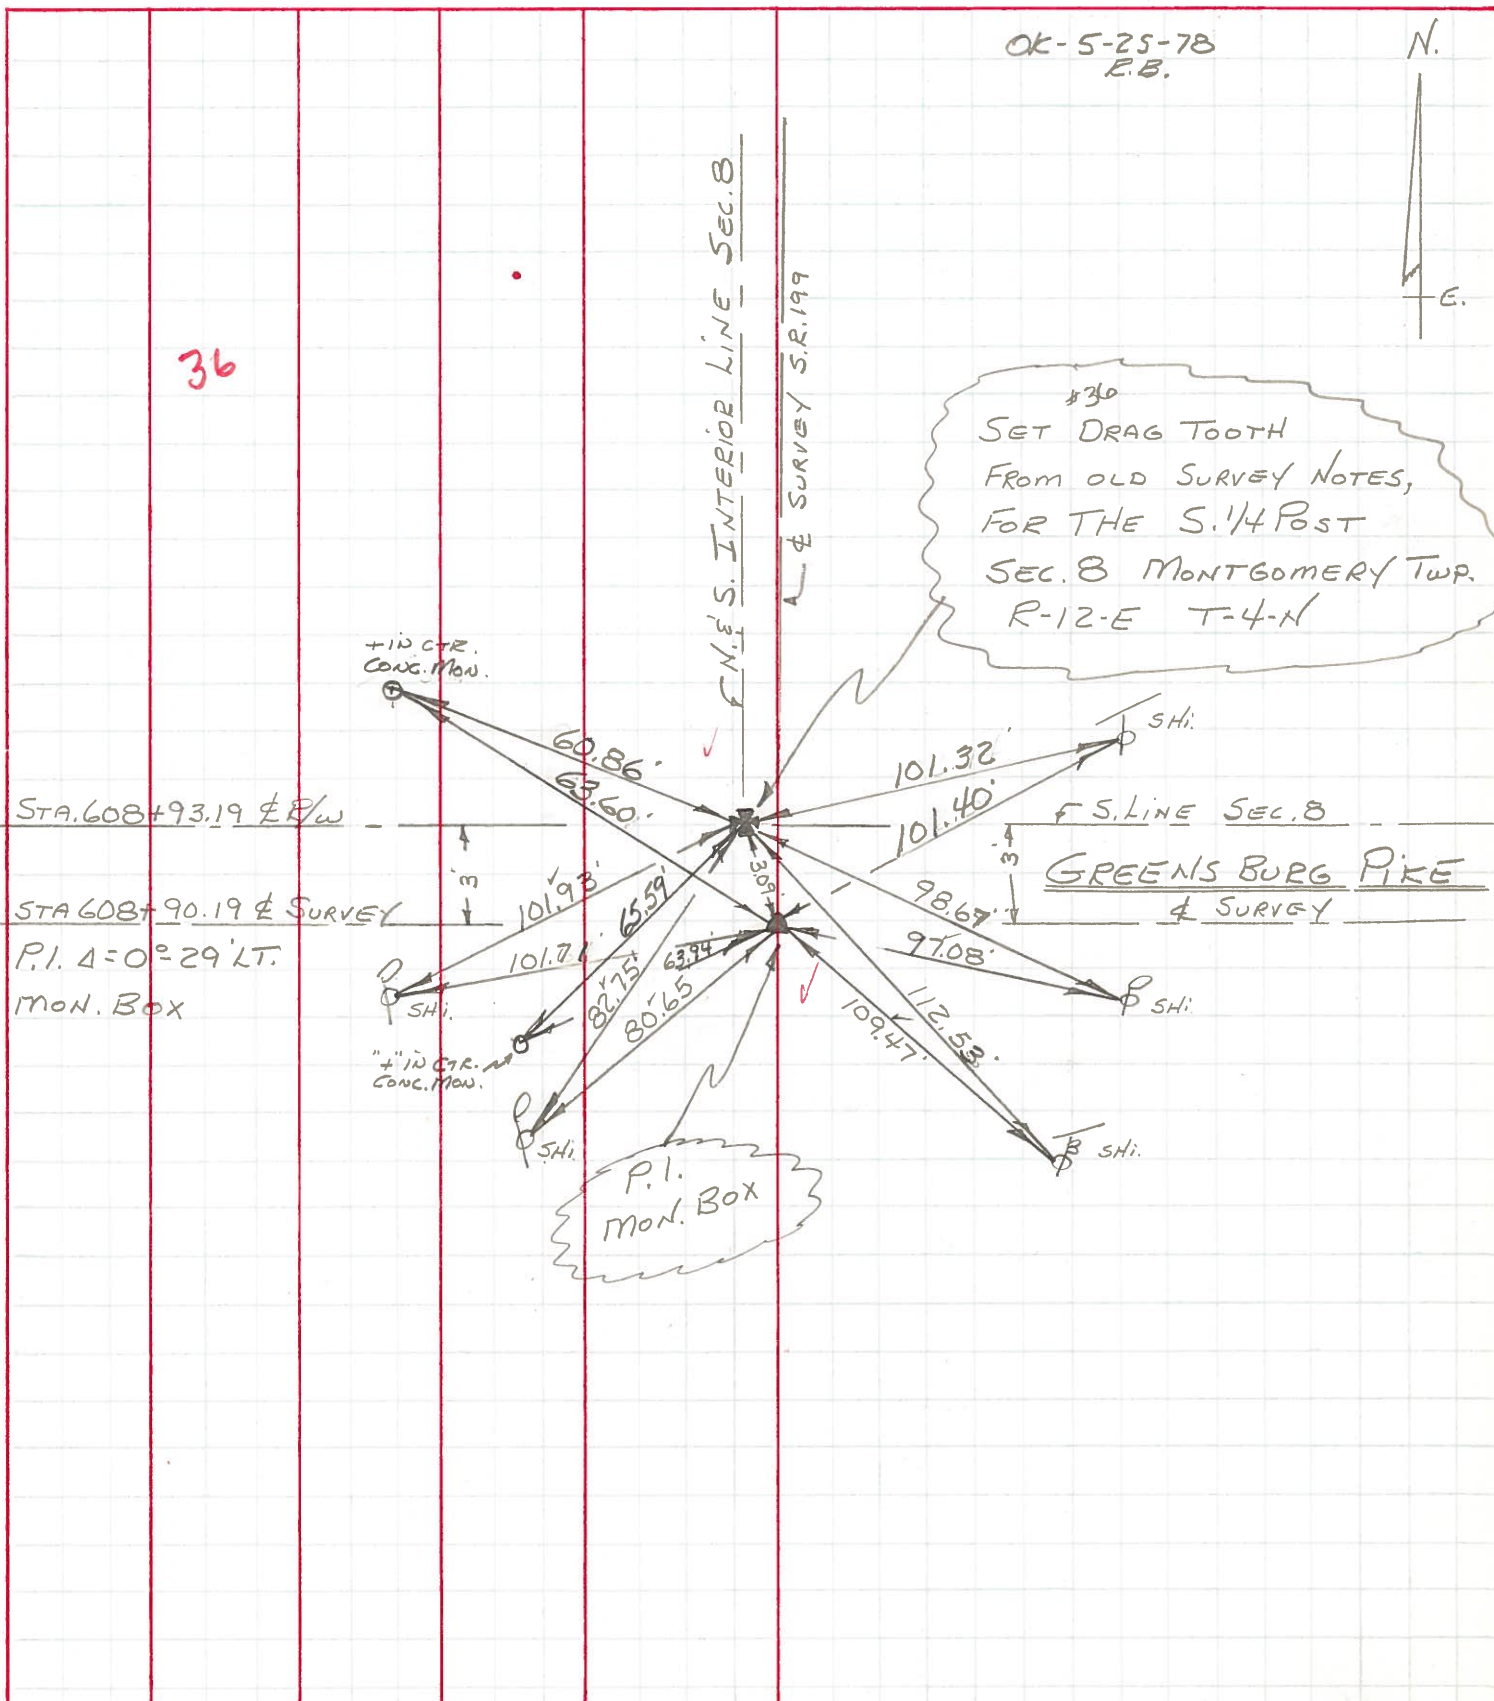 OK-5-25-78
E.B.
N.
E.
36
N. & S. INTERIOR LINE SEC. 8
℄ SURVEY S.R. 199
#36
SET DRAG TOOTH
FROM OLD SURVEY NOTES,
FOR THE S. 1/4 POST
SEC. 8 MONTGOMERY TWP.
R-12-E T-4-N
+ IN CTR.
CONC. MON.
SHi.
60.86'
63.60'
101.32'
101.40'
STA. 608+93.19 ℄ R/W
S. LINE SEC. 8
3'
3'
GREENSBURG PIKE
℄ SURVEY
STA 608+90.19 ℄ SURVEY
P.I. Δ=0°29' LT.
MON. BOX
101.93'
101.71'
65.59'
3.09'
63.94'
82.75'
80.65'
98.67'
97.08'
112.53'
109.47'
SHi.
SHi.
"+" IN CTR.
CONC. MON.
SHi.
SHi.
P.I.
MON. BOX